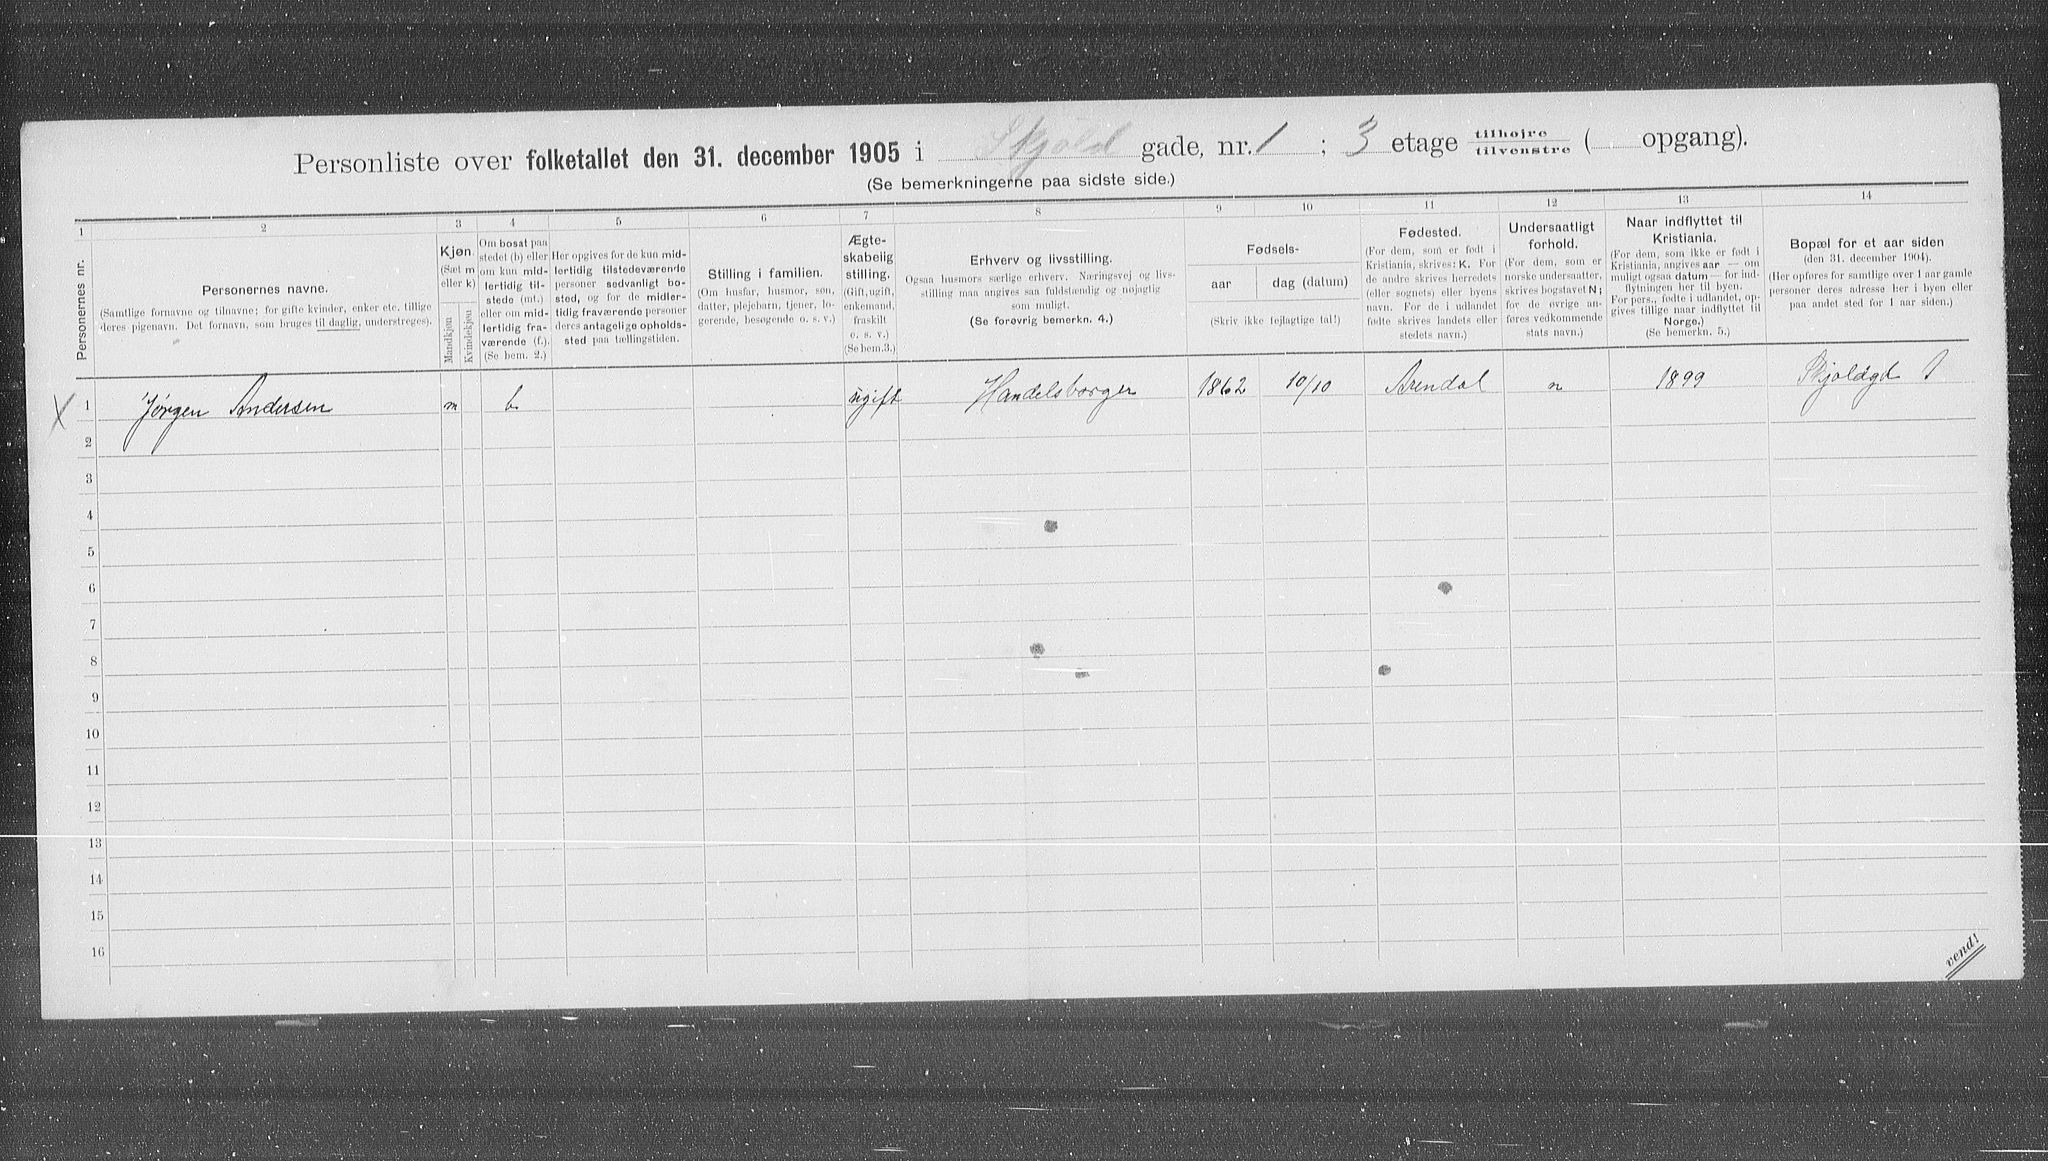 Personliste over folketallet den 31. december 1905 i Skjöld gade, nr. 1 ; 3 etage tilhøjre tilvenstre ( opgang).
(Se bemerkningerne paa sidste side.)
1 2 3 4 5 6 7 8 9 10 11 12 13 14
Personernes nr.
Personernes navne.
(Samtlige fornavne og tilnavne; for gifte kvinder, enker etc. tillige
deres pigenavn. Det fornavn, som bruges til daglig, understreges).
Kjøn.
(Sæt m
eller k)
Mandkjøn
Kvindekjøn
Om bosat paa
stedet (b) eller
om kun mid-
lertidig til-
stede (mt.)
eller om mid-
lertidig fra-
værende (f.).
(Se bem. 2.)
Her opgives for de kun mid-
lertidig tilstedeværende
personer sedvanligt bo-
sted, og for de midler-
tidig fraværende personer
deres antagelige opholds-
sted paa tællingstiden.
Stilling i familien.
(Om husfar, husmor, søn,
datter, plejebarn, tjener, lo-
gerende, besøgende o. s. v.)
Ægte-
skabelig
stilling.
(Gift, ugift,
enkemand,
fraskilt
o. s. v.)
(Se bem. 3.)
Erhverv og livsstilling.
Ogsaa husmors særlige erhverv. Næringsvej og livs-
stilling maa angives saa fuldstændig og nøjagtig
som muligt.
(Se forøvrig bemerkn. 4.)
Fødsels-
aar dag (datum)
(Skriv ikke fejlagtige tal!)
Fødested.
(For dem, som er født i
Kristiania, skrives: K. For
de andre skrives herredets
(eller sognets) eller byens
navn. For de i udlandet
fødte skrives landets eller
stedets navn.)
Undersaatligt
forhold.
(For dem, som er
norske undersaatter,
skrives bogstavet N;
for de øvrige an-
føres vedkommende
stats navn.)
Naar indflyttet til
Kristiania.
(For dem, som ikke er født i
Kristiania, angives aar — om
muligt ogsaa datum — for ind-
flytningen her til byen.
For pers., fødte i udlandet, op-
gives tillige naar indflyttet til
Norge.)
(Se bemerkn. 5.)
Bopæl for et aar siden
(den 31. december 1904).
(Her opføres for samtlige over 1 aar gamle
personer deres adresse her i byen eller
paa andet sted for 1 aar siden.)
X 1 Jørgen Andersen m b ugift Handelsborger 1862 10/10 Arendal n 1899 Skjoldgd 1
2
3
4
5
6
7
8
9
10
11
12
13
14
15
16
vend!